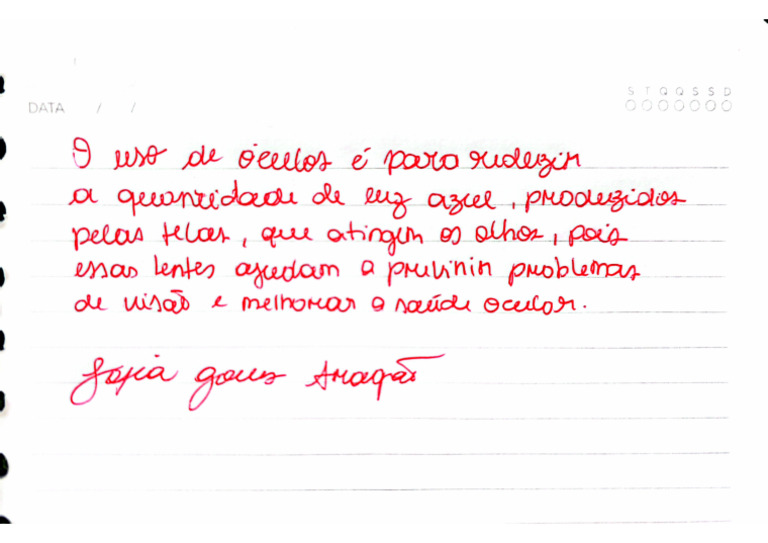 S T Q Q S S D
DATA / /
O uso de óculos é para reduzir
a quantidade de luz azul, produzidos
pelas telas, que atingem os olhos, pois
essas lentes ajudam a previnir problemas
de visão e melhorar a saúde ocular.
Gomes Aragão